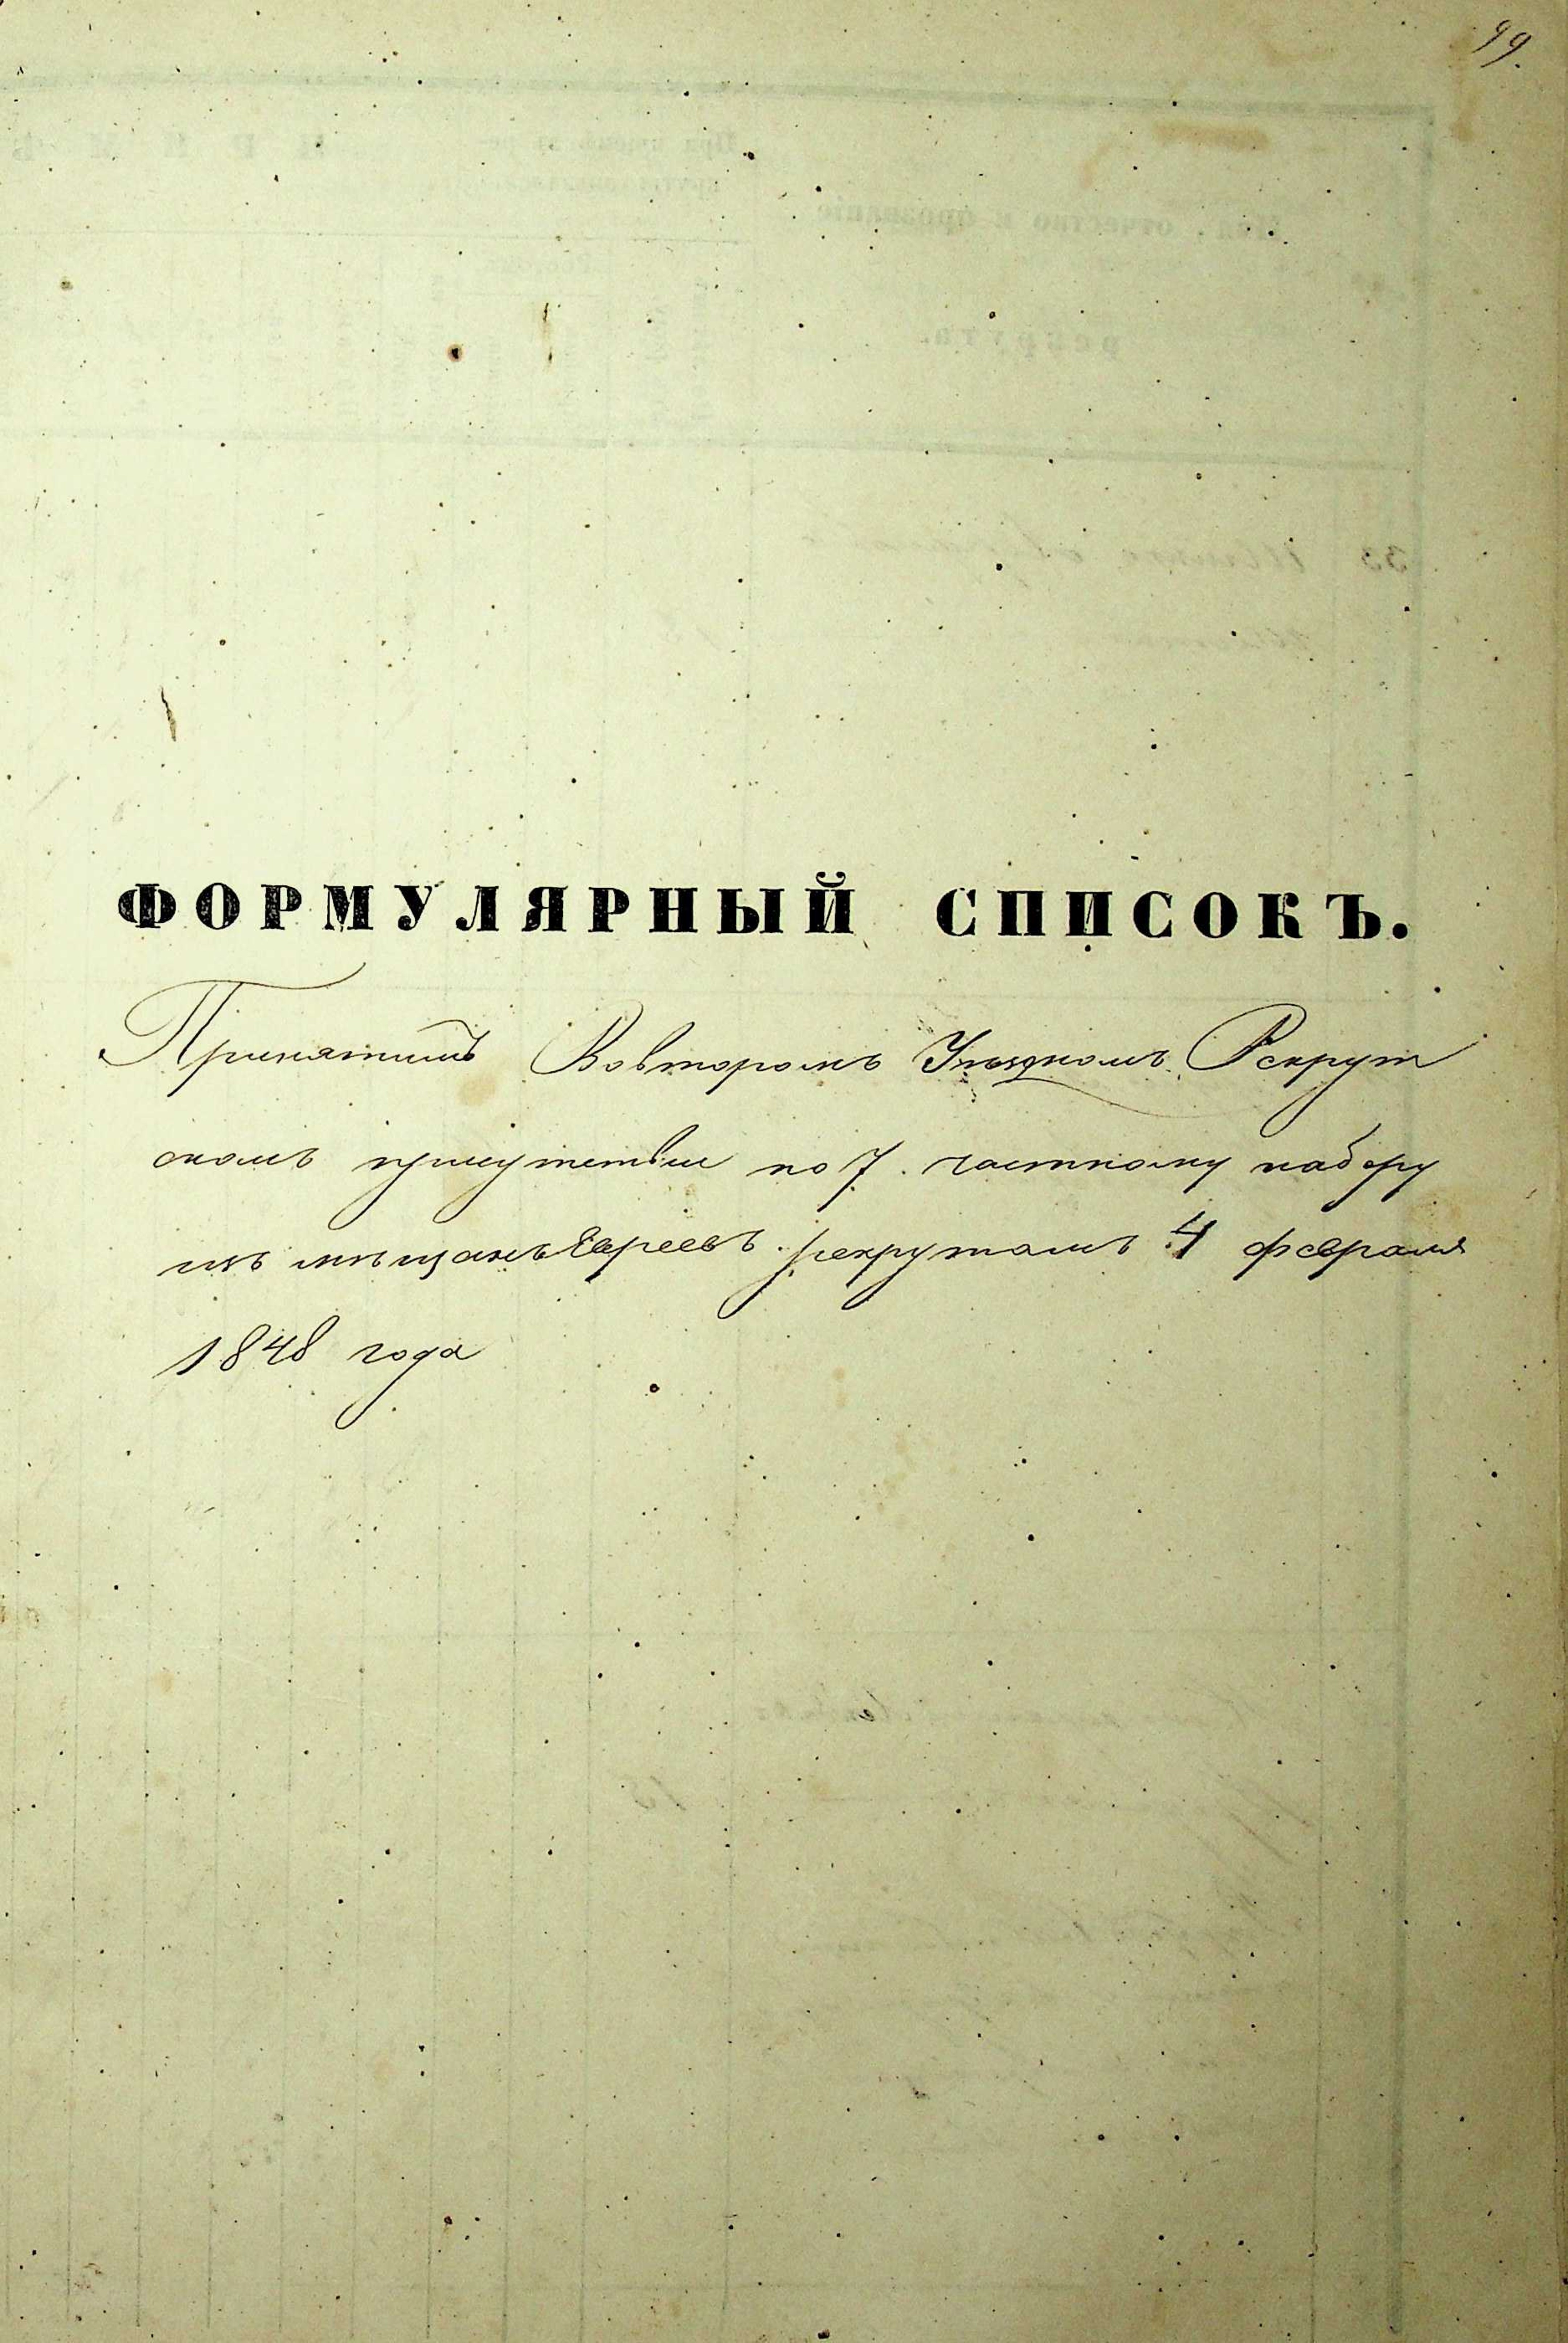 99.
ФОРМУЛЯРНЫЙ СПИСОКЪ.
Принятымъ Вовторомъ Уѣздномъ Рекрут
скомъ присутствіи по 7. частному набору
изъ мѣщанъ Евреевъ рекрутамъ 4 февраля
1848 года